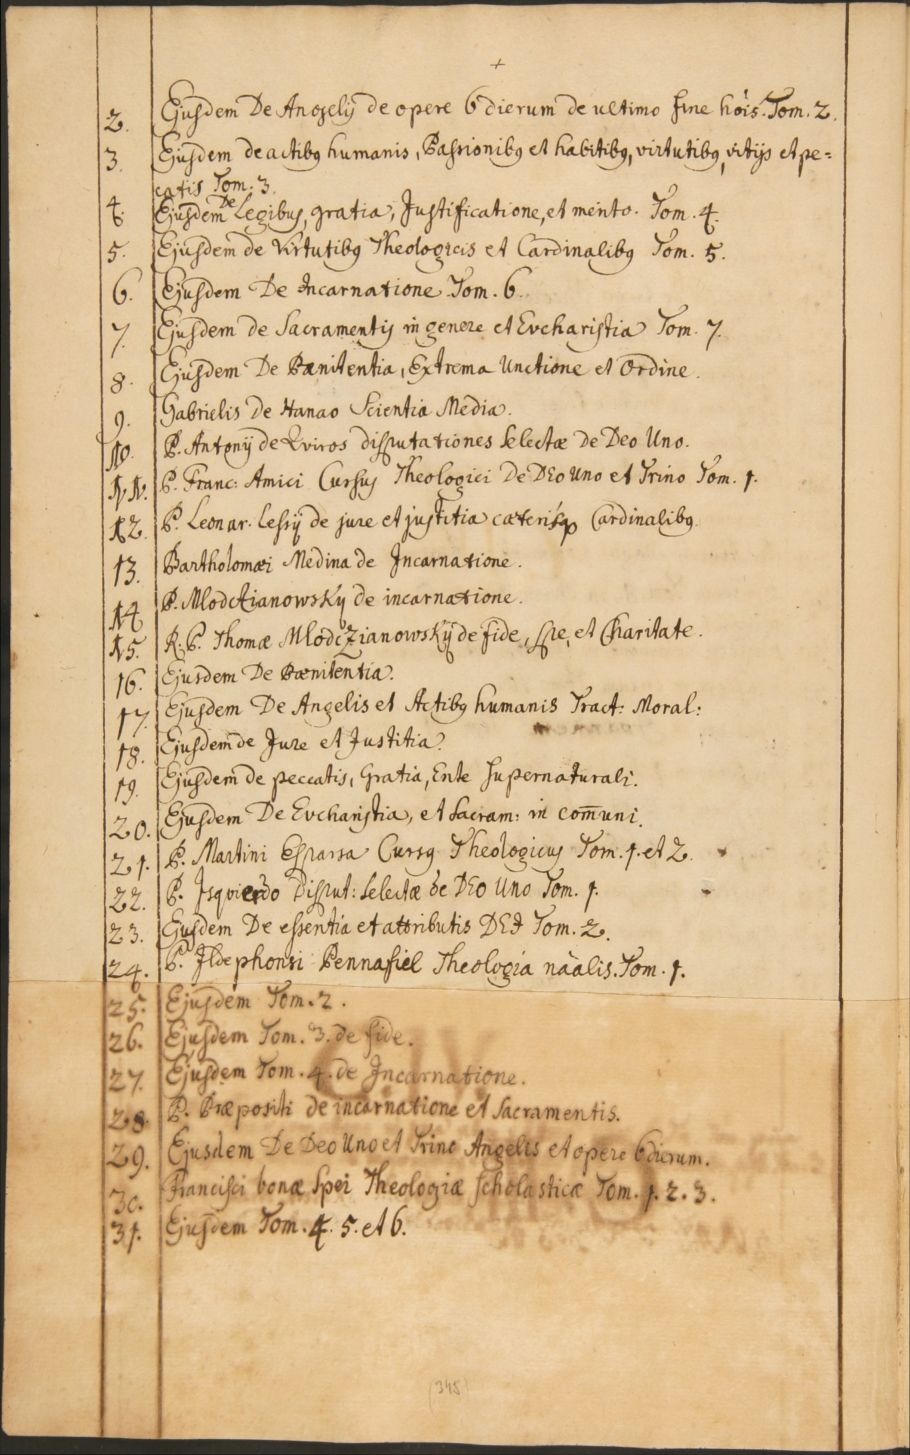 +
2. Ejusdem De Angelis de opere 6 dierum de ultimo fine hôis. Tom. 2.
3. Ejusdem de actibq humanis, Passionibq et habitibq, virtutibq, vitijs et pe=
catis Tom. 3.
4. Ejusdem De Legibus, gratia, Justificatione, et merito. Tom. 4.
5. Ejusdem de Virtutibq Theologicis et Cardinalibq Tom. 5.
6. Ejusdem De Incarnatione Tom. 6.
7. Ejusdem de Sacramentis in genere et Evcharistia Tom. 7.
8. Ejusdem De Pænitentia, Extrema Unctione et Ordine.
9. Gabrielis de Hanao Scientia Media.
10. P. Antonij de Qviros disputationes selectæ De Deo Uno.
11. P. Franc: Amici Cursus Theologici De DEo uno et Trino Tom. 1.
12. P. Leonar. Lessij de jure et justitia cæterisqp Cardinalibq.
13. Bartholomæi Medina de Incarnatione.
14 P. Mlodczianowsky de incarnatione.
15. R. P. Thomæ Mlodczianowskÿ de fide, spe, et Charitate.
16. Ejusdem De Pænitentia.
17. Ejusdem De Angelis et Actibq humanis Tract: Moral:
18. Ejusdem de Jure et Justitia.
19. Ejusdem de peccatis, Gratia, Ente supernaturali.
20. Ejusdem De Evcharistia, et Sacram: in com̄uni.
21. P. Martini Esparsa Cursq Theologicus Tom. 1. et 2.
22. P. Isqvierdo Disput: selectæ de DEo Uno Tom. 1.
23. Ejusdem De essentia et attributis DEI Tom. 2.
24. P. Ildephonsi Pennafiel Theologia nâalis. Tom. 1.
25. Ejusdem Tom. 2.
26. Ejusdem Tom. 3. de fide.
27. Ejusdem Tom. 4. de Incarnatione.
28. P. Præpositi de incarnatione et Sacramentis.
29. Ejusdem De Deo Uno et Trino Angelis et opere 6 dierum.
30. Francisci bonæ Spei Theologiæ scholasticæ Tom. 1. 2. 3.
31. Ejusdem Tom. 4. 5. et 6.
(345)